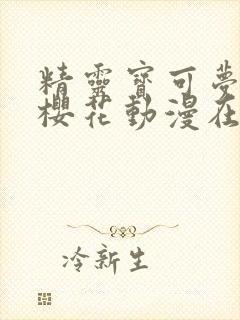 精靈寶可夢
櫻花動漫在
冷新生